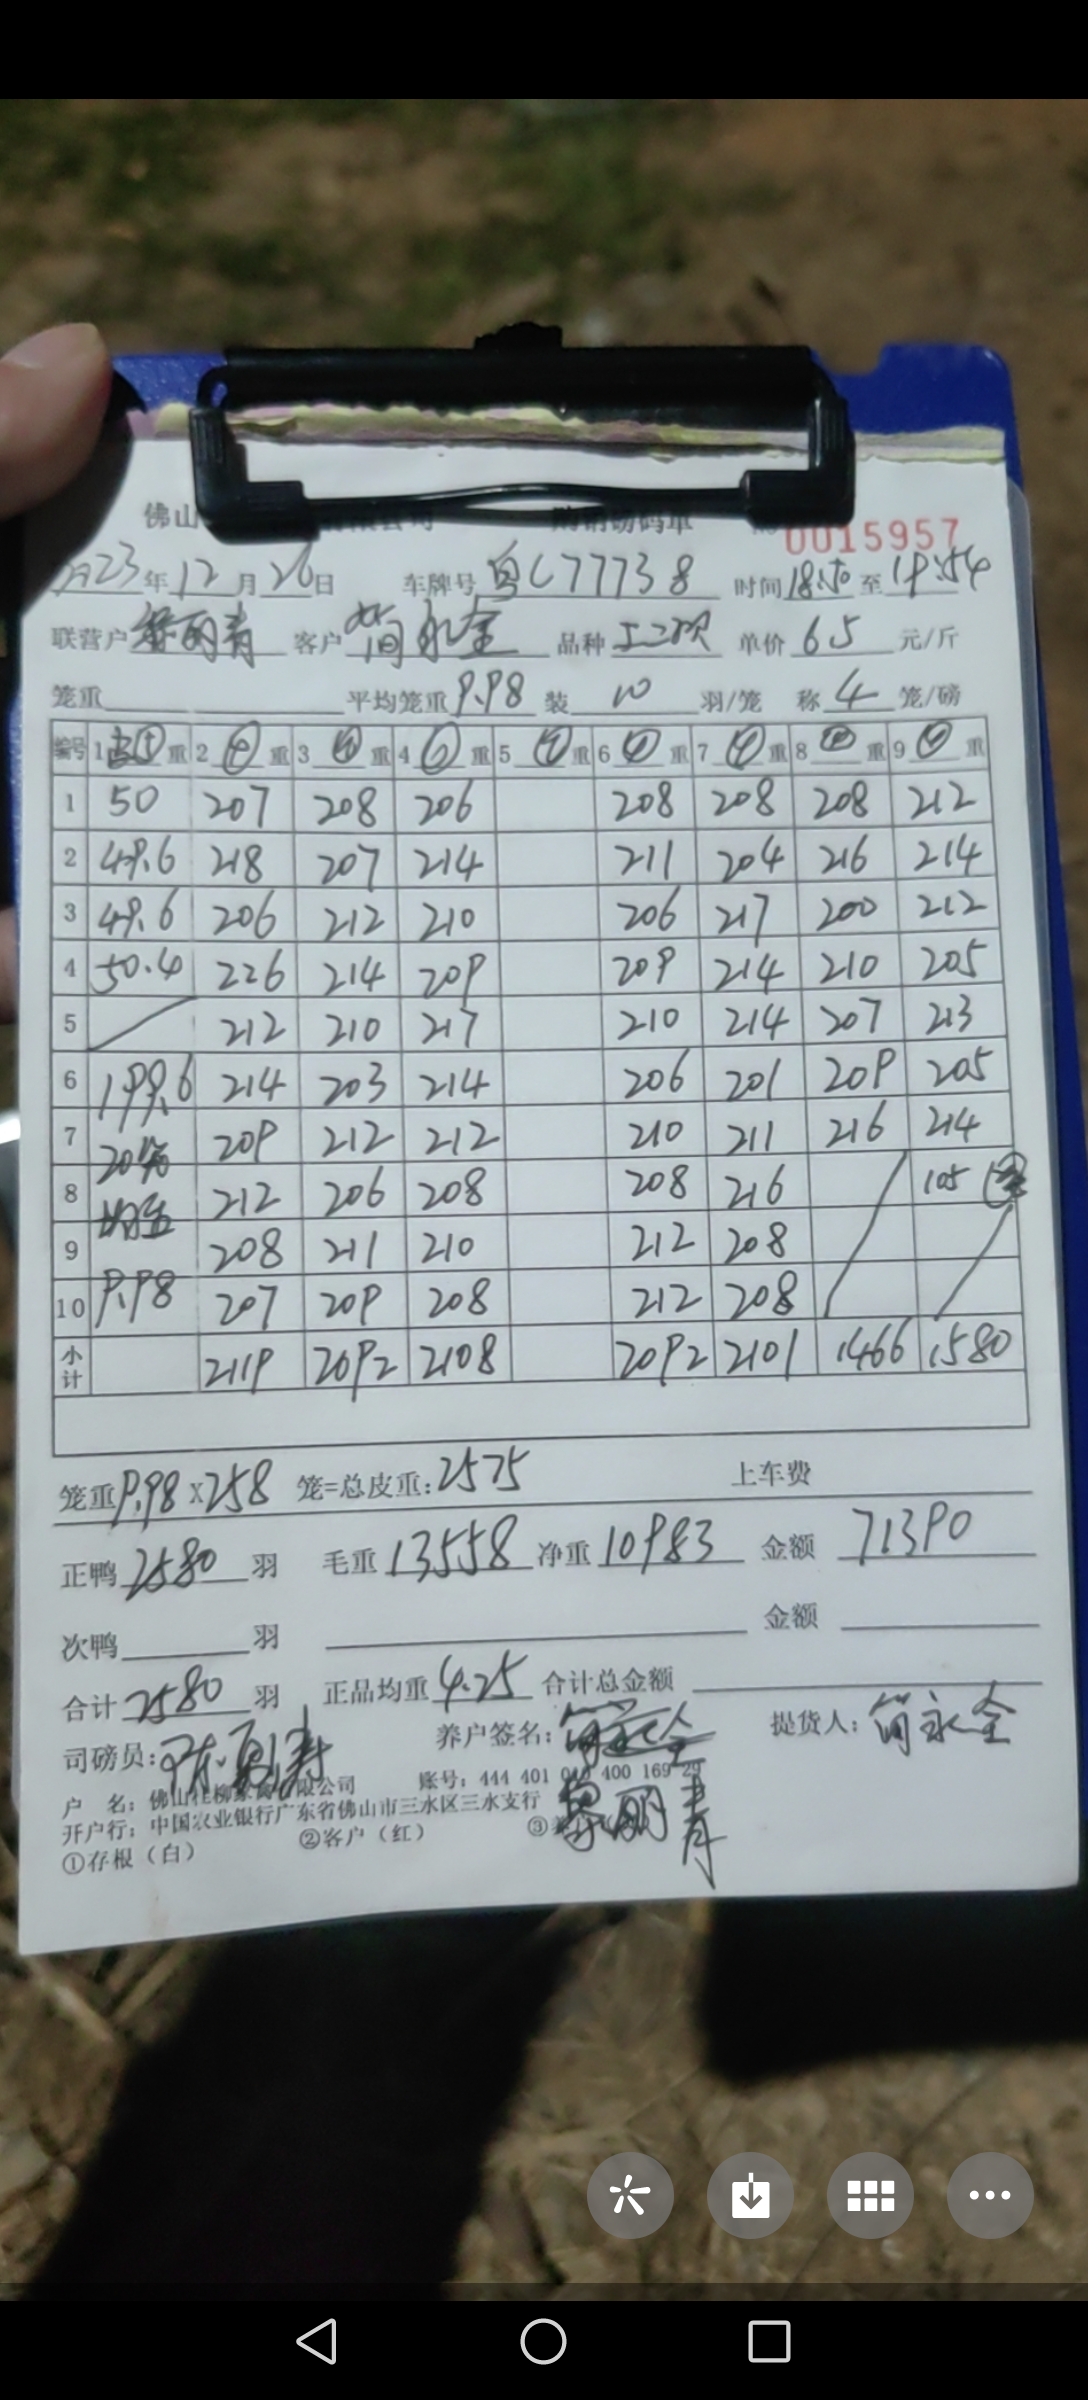 佛山 购销磅码单 No 0015957
2023年12月26日 车牌号 粤C77738 时间18:50至19:54
联营户 黎丽青 客户 简永全 品种 单价 6.5 元/斤
笼重 平均笼重 9.98 装 10 羽/笼 称 4 笼/磅
编号 1 重 2 重 3 重 4 重 5 重 6 重 7 重 8 重 9 重
1 50 207 208 206 208 208 208 212
2 49.6 218 207 214 211 204 216 214
3 49.6 206 212 210 206 217 200 212
4 50.4 226 214 209 209 214 210 205
5 212 210 217 210 214 207 213
6 199.6 214 203 214 206 201 209 205
7 20笼 209 212 212 210 211 216 214
8 均重 212 206 208 208 216 105
9 208 211 210 212 208
10 9.98 207 209 208 212 208
小计 2119 2092 2108 2092 2101 1466 1580
笼重9.98X258 笼=总皮重:2575 上车费
正鸭 2580 羽 毛重 13558 净重 10983 金额 71390
次鸭 羽 金额
合计 2580 羽 正品均重 4.25 合计总金额
司磅员: 养户签名: 简永全 提货人: 简永全
黎丽青
户 名: 佛山 限公司 账号: 444 401 040 400 169 29
开户行: 中国农业银行广东省佛山市三水区三水支行
①存根（白） ②客户（红） ③